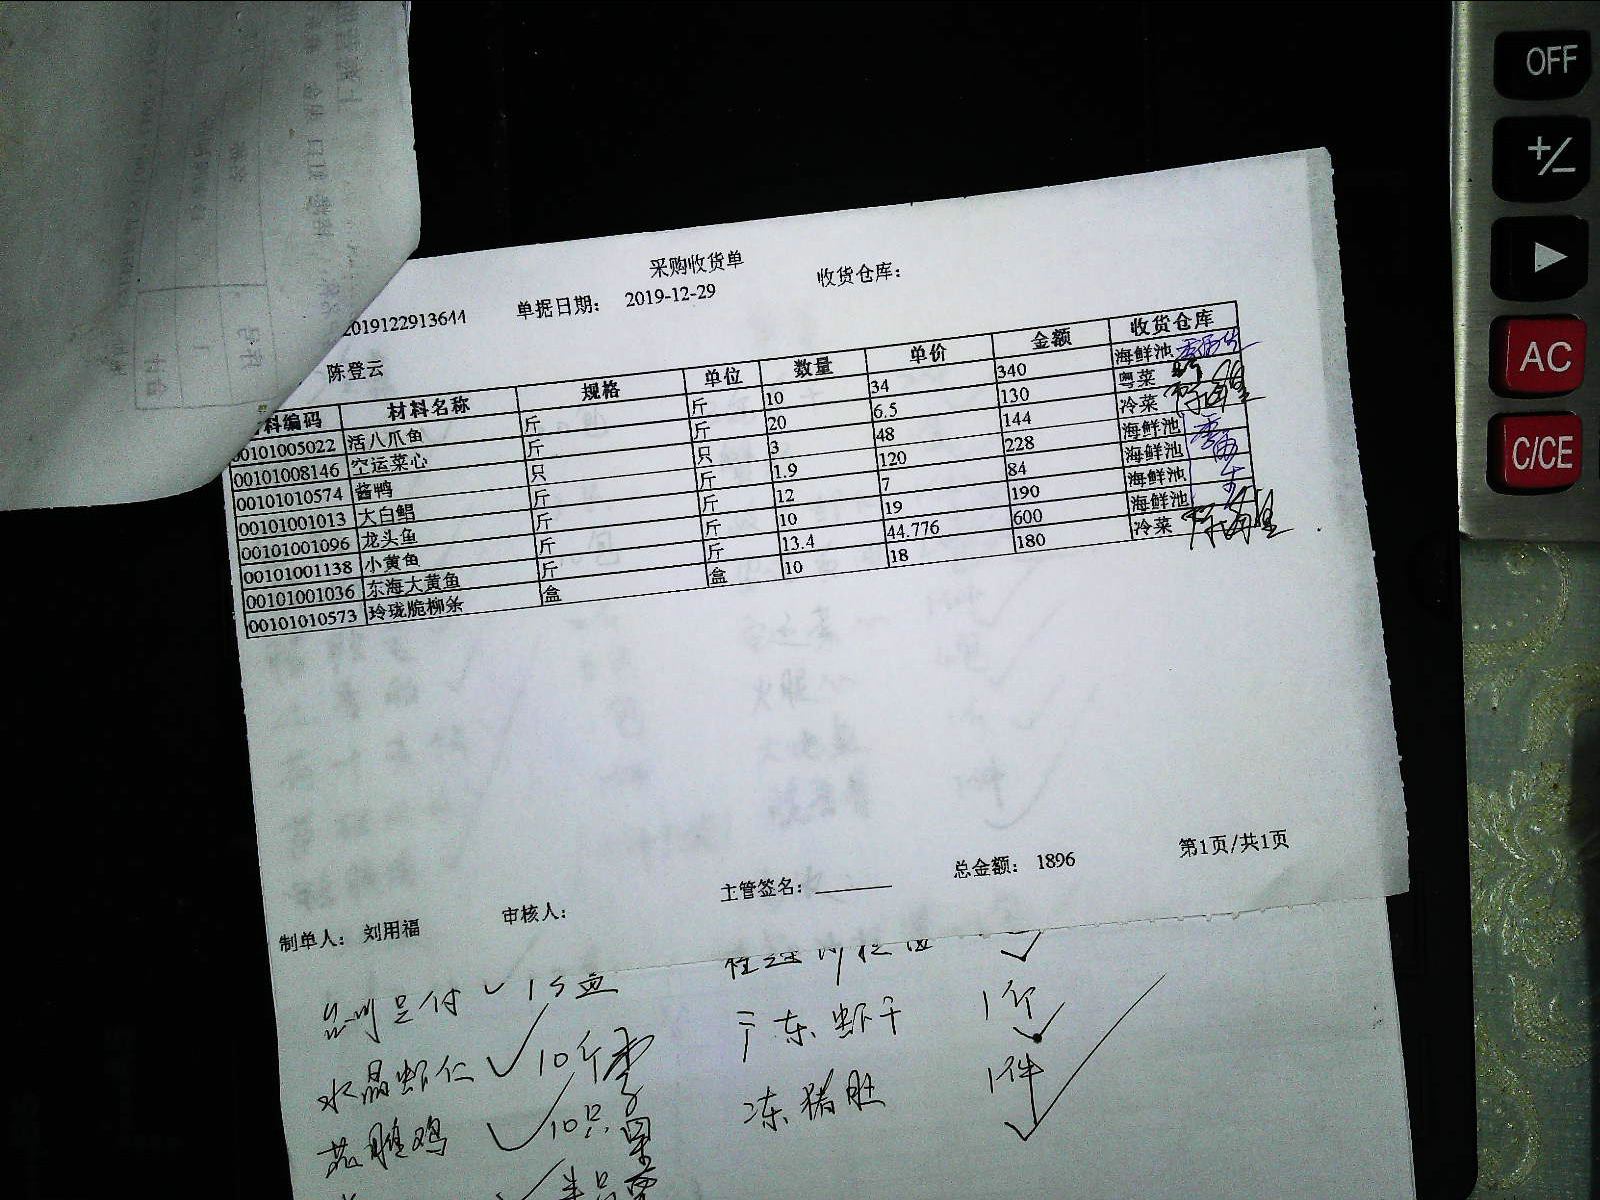 采购收货单
2019122913644 单据日期： 2019-12-29 收货仓库：
陈登云
料编码 材料名称 规格 单位 数量 单价 金额 收货仓库
00101005022 活八爪鱼 斤 斤 10 34 340 海鲜池
00101008146 空运菜心 斤 斤 20 6.5 130 粤菜
00101010574 酱鸭 只 只 3 48 144 冷菜
00101001013 大白鲳 斤 斤 1.9 120 228 海鲜池
00101001096 龙头鱼 斤 斤 12 7 84 海鲜池
00101001138 小黄鱼 斤 斤 10 19 190 海鲜池
00101001036 东海大黄鱼 斤 斤 13.4 44.776 600 海鲜池
00101010573 玲珑脆柳条 盒 盒 10 18 180 冷菜
制单人： 刘用福 审核人： 主管签名： 总金额： 1896 第1页/共1页
水晶虾仁 10斤
广东虾干 1个
10只
冻猪肚 1件
OFF
+/-
AC
C/CE